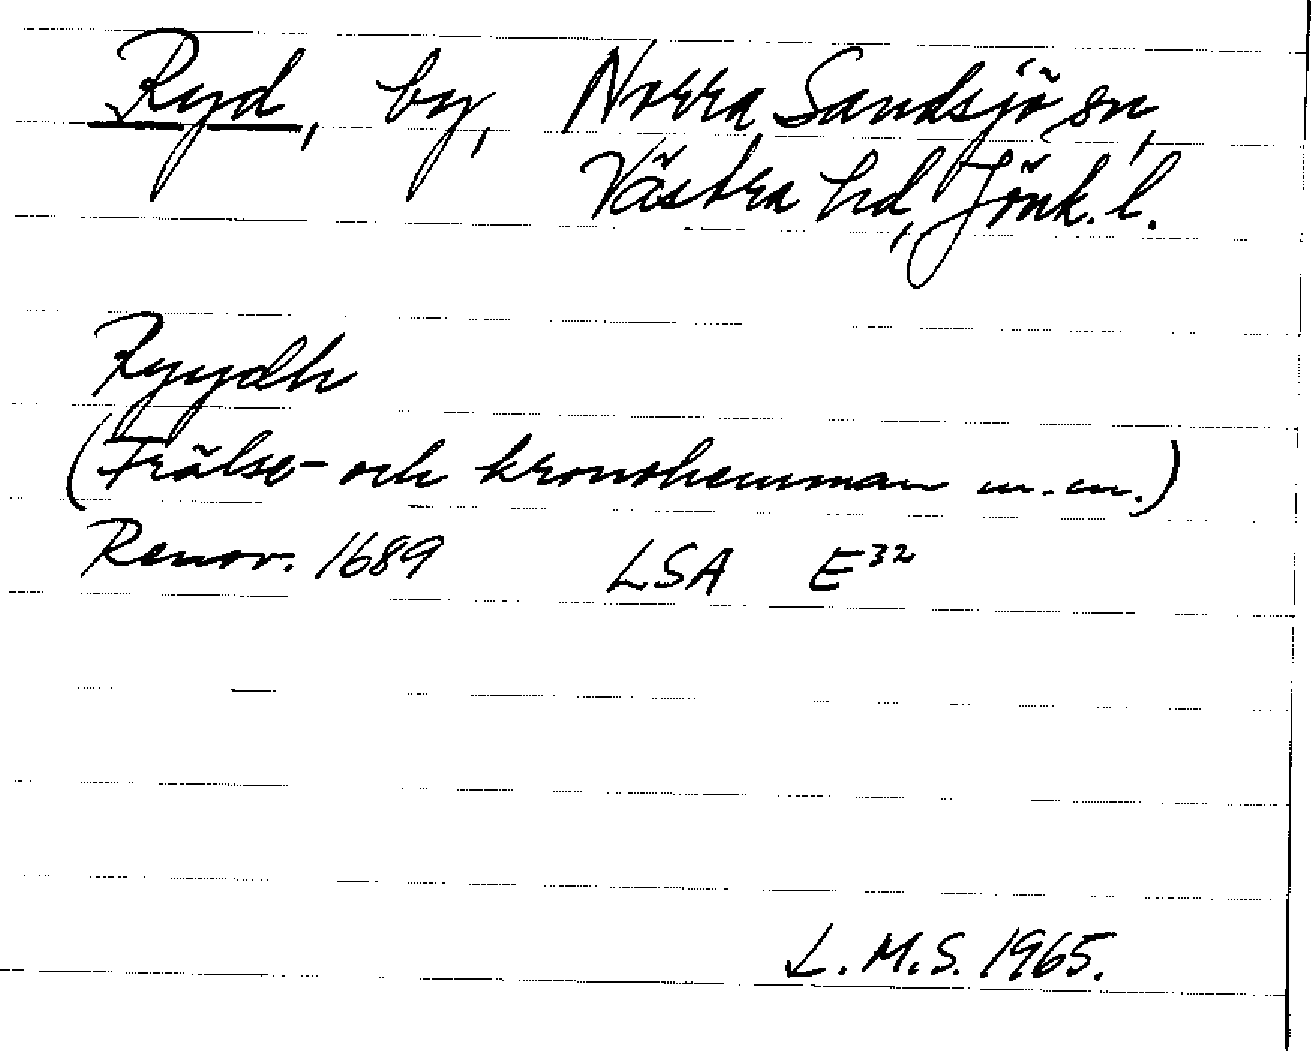 Ryd, by, Norra Sandsjö sn,
Västra hd, Jönk. l.
Ryydh
(Frälse- och kronohemman m.m.)
Renov. 1689 LSA E³²
L.M.S. 1965.